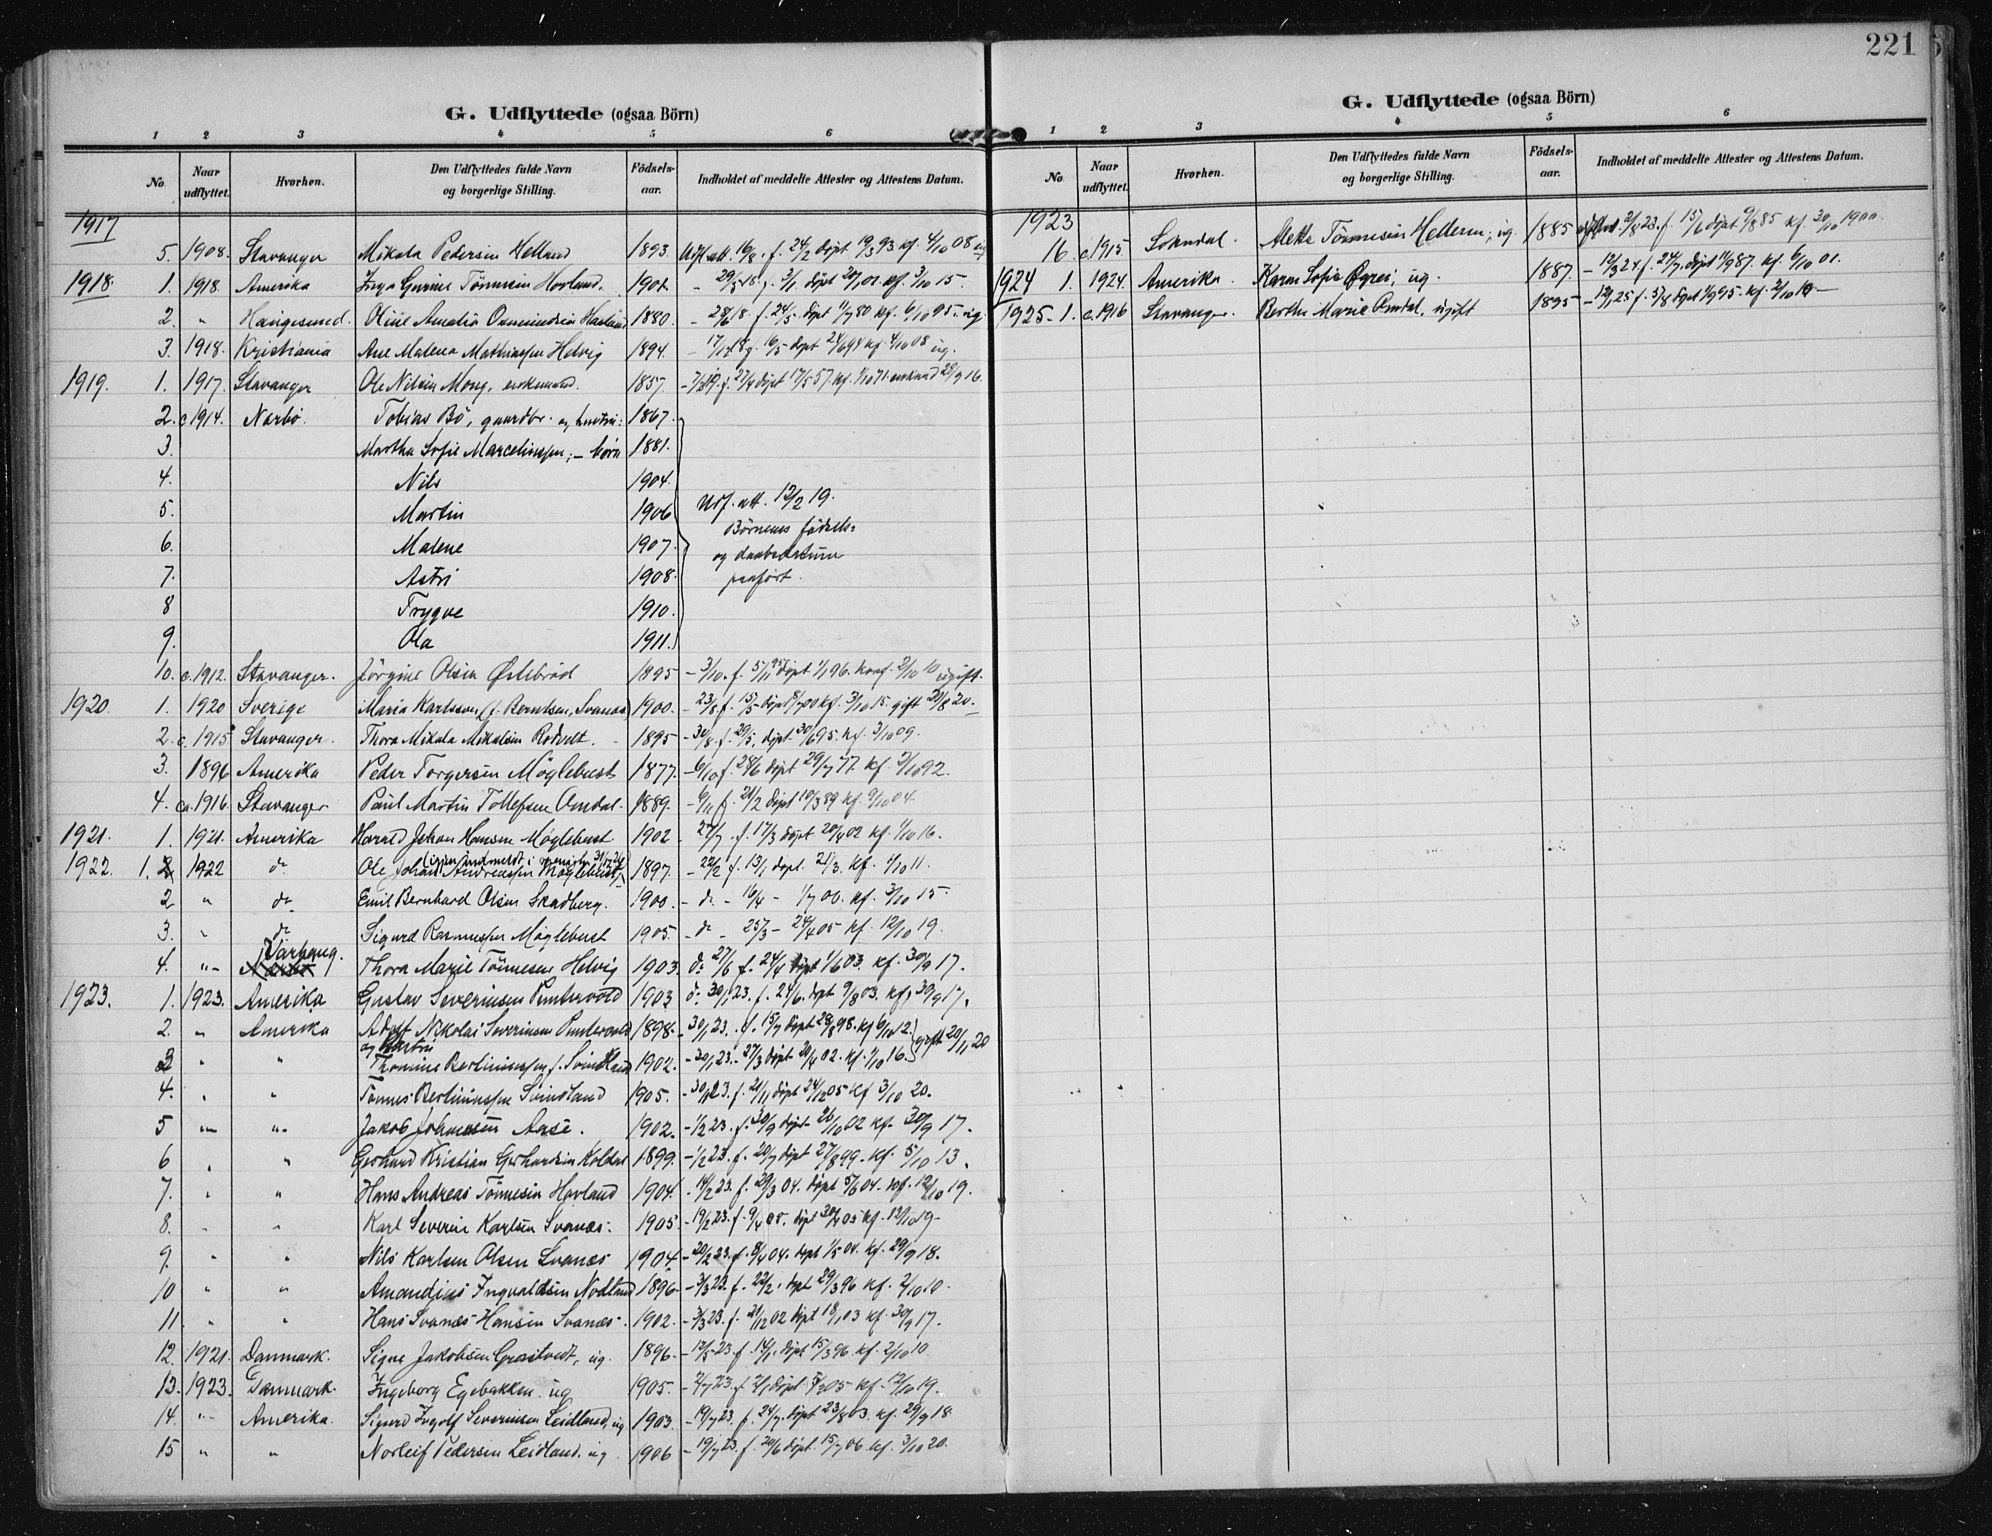 221
G. Udflyttede (ogsaa Börn)
1 2 3 4 5 6
No. Naar udflyttet. Hvorhen. Den Udflyttedes fulde Navn og borgerlige Stilling. Födsels-aar. Indholdet af meddelte Attester og Attestens Datum.
1917
5. 1908. Stavanger Mikala Pedersen Helland 1893. Udfl. att. 16/8. f. 24/2 döpt 19/3 93 kf. 4/10 08 ug
1918. 1. 1918. Amerika Inga Gurine Tönnesen Hovland. 1901. - 29/5 18. f. 3/1 döpt 20/1 01 kf. 3/10 15.
2. " Haugesund. Oline Amalia Osmundsen Hovland 1880. - 28/6 18. f. 24/5 döpt 11/7 80 kf. 6/10 95. ug.
3. 1918. Kristiania Ane Malena Mathiassen Helvig 1894. - 17/12 18 f. 16/5 döpt 24/6 94 kf. 4/10 08 ug.
1919. 1. 1917. Stavanger Ole Nilsen Mong, enkemand. 1857. f. 27/4 döpt 17/5 57. kf. 1/10 71. enkmd 28/9 16.
2. c. 1914. Nærbö. Tobias Bö, gaardbr. og hustru: 1867.
3. Martha Sofie Marcelinssen; - börn 1881.
4. Nils 1904.
5. Martin 1906
6. Malene 1907.
7. Astri 1908.
8 Trygve 1910.
9. Ola 1911.
Udf. att. 12/2 19.
Börnenes födsels-
og daabsdatum
paafört.
10. c. 1912. Stavanger. Jörgine Olsen Örlebröd 1895 - 3/10. f. 5/11 95 döpt 1/1 96. konf. 2/10 10 ugift.
1920. 1. 1920 Sverige Maria Karlsson (f. Berntsen, Svanes) 1900. - 23/8 f. 15/5 döpt 8/7 00 kf. 3/10 15. gift 20/8 20.
2. c. 1915 Stavanger. Thora Mikala Mikalsen Rodvelt. 1895 - 30/8 f. 29/5, döpt. 30/6 95. kf. 3/10 09.
3. 1896 Amerika Peder Torgersen Möglebust 1877. - 6/10 f. 28/6 döpt 29/7 77. kf. 2/10 92.
4. ca. 1916. Stavanger Paul Martin Tollefsen Omdal. 1889. - 6/11 f. 21/2 döpt 10/3 89 kf. 9/10 04
1921. 1. 1921. Amerika Harald Johan Hansen Möglebust 1902 - 27/7. f. 17/3 döpt 20/4 02 kf. 1/10 16.
1922. 1. 1922 do Ole Johan Andreassen Möglebust 1897. - 22/2 f. 13/1 döpt. 21/3. kf. 1/10 11.
2 " do Emil Bernhard Olsen Skadberg. 1900. - do - 16/4 - 1/7 00. kf. 3/10 15.
3. " do Sigurd Rasmussen Möglebust 1905. - do - 25/3 - 24/4 05 kf. 12/10 19.
4. " Varhaug. Thora Marie Tönnesen Helvig 1903. do 27/6 f. 24/4 döpt 1/6 03. kf. 30/9 17.
1923. 1. 1923. Amerika Gustav Severinsen Puntervold 1903 do 30/1 23. f. 24/6. döpt 9/8 03. kf. 30/9 17.
2. " Amerika Adolf Nikolai Severinsen Puntervold 1898. - 30/1 23. f. 15/7 döpt 28/8 98. kf 6/10 12. gift 20/11 20
og hustru
3 " " Thomine Bertinussen f. Svindland 1902. - 30/1 23. - 27/3 döpt 20/4 02. kf. 1/10 16.
4. " " Tönnes Bertinussen Svindland 1905. - 30/1 23. f. 21/11 döpt 24/12 05 kf 3/10 20.
5 " " Jakob Johnssen Aase. 1902. - 1/2 23. f. 30/9 döpt 26/10 02 kf. 30/9 17.
6 " " Gerhard Kristian Gerhardsen Koldal 1899. - 1/2 23. f. 20/7 döpt 27/8 99. kf. 5/10 13.
7. " " Hans Andreas Tönnesen Hovland 1904. - 14/2 23. f. 29/3 04. döpt 5/6 04. kf. 12/10 19.
8. " " Karl Severin Karlsen Svanes. 1905. - 19/2 23. f. 9/4 05. döpt 30/4 05 kf. 12/10 19
9. " " Nils Karlsen Olsen Svanes 1904. - 20/2 23. f. 8/4 04. döpt 1/5 04. kf. 29/9 18.
10 " " Amandius Ingvaldsen Nodland 1896 - 3/3 23. f. 22/2. döpt 29/3 96 kf. 2/10 10.
11. " " Hans Svanes Hansen Svanes. 1902. - 3/3 23. f. 21/12 02 döpt 18/1 03 kf. 30/9 17.
12. 1921. Danmark. Signe Jakobsen Grastvedt, ug. 1896. - 12/5 23. f. 14/1. döpt 15/3 96. kf. 2/10 10.
13. 1923. Danmark. Ingeborg Egebakken. ug 1905. - 2/7 23. f. 2/1 döpt 5/2 05 kf. 12/10 19.
14. " Amerika. Sigurd Ingolf Severinsen Leidland, ug 1903. - 19/7 23. f. 24/7. döpt 23/8 03. kf. 29/9 18.
15 " " Norleif Pedersen Leidland. ug 1906 - 19/7 23. f. 20/6 döpt 15/7 06. kf. 3/10 20.
G. Udflyttede (ogsaa Börn)
1 2 3 4 5 6
No. Naar udflyttet. Hvorhen. Den Udflyttedes fulde Navn og borgerlige Stilling. Födsels-aar. Indholdet af meddelte Attester og Attestens Datum.
1923
16. c. 1915. Sokndal. Alette Tönnesen Helleren, ug. 1885 2/8 23. f. 15/6 döpt 9/8 85 kf. 30/10 1900.
1924 1. 1924. Amerika. Karen Sofie Ögrei, ug. 1887. - 12/3 24 f. 24/7. döpt 11/9 87. kf. 6/10 01.
1925 - 1. c. 1916 Stavanger. Berthe Marie Omdal, ugift 1895 f. 5/8 döpt 1/9 95. kf. 2/10 10 -